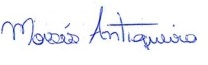 Moisés Antiqueira